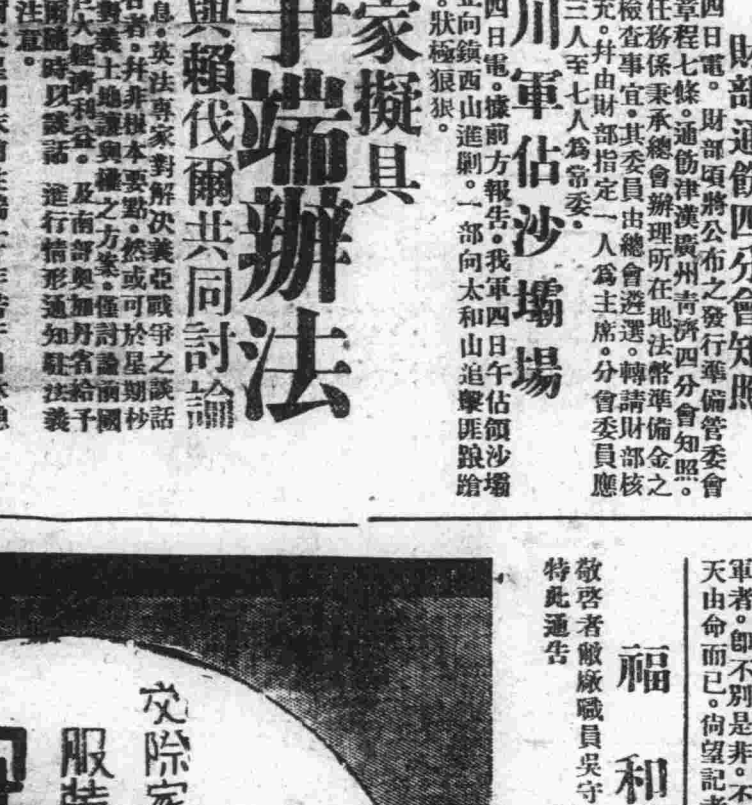 財部通飭四分會知照
四日電。財部頃將公布之發行準備管委會
章程七條。通飭津漢廣州靑濟四分會知照。
任務係秉承總會辦理所在地法幣準備金之
檢查事宜。其委員由總會遴選。轉請財部核
充。幷由財部指定一人爲主席。分會委員應
三人至七人爲常委。
川軍佔沙壩場
四日電。據前方報告。我軍四日午佔領沙壩
向鎮西山進剿。一部向太和山追擊匪踉蹌
。狀極狼狽。
家擬具
爭端辦法
與賴伐爾共同討論
息。英法專家對解决義亞戰爭之談話
者。幷非根本要點。然或可於星期杪
對義土地讓與權之方案。僅討論前國
大經濟利益。及南部奧加丹省給予
爾隨時以談話進行情形通知駐法義
注意。
軍者。卽不別是非。不
天由命而已。尙望記者
福和
敬啓者敝廠職員吳守
特此通告
交際家
服裝